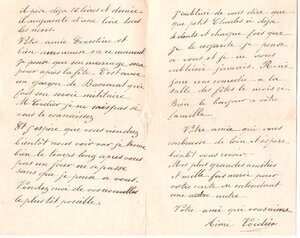 il pèse déjà 16 livres et demie
il augmente d'une livre tous
les mois.
Votre amie Ernestine est
bien en ce moment
Je pense que son mariage sera
pour après la fête. C'est avec
un garçon de Baccarat qui
fait son service militaire
M. Cordier je ne sais pas si
vous le connaissez
Et j'espère que vous viendrez
bientôt nous voir car je trouve
bien le temps long après vous
pas un jour ne se passe
sans que je pense à vous
Rendez-moi de vos nouvelles
le plus tôt possible.
J'oubliais de vous dire que
que petit Charles a déjà
dents et chaque fois que
je le regarde je pense
à vous et je ne vous
oublierai jamais. René
joue une comédie à la
salle des fêtes le mois
Bien le bonjour à votre
famille.
Votre amie qui vous
embrasse de loin et espère
bientôt vous revoir
Mes plus grandes amitiés
et mille fois merci pour
votre carte en attendant
une autre.
Votre amie qui vous aime